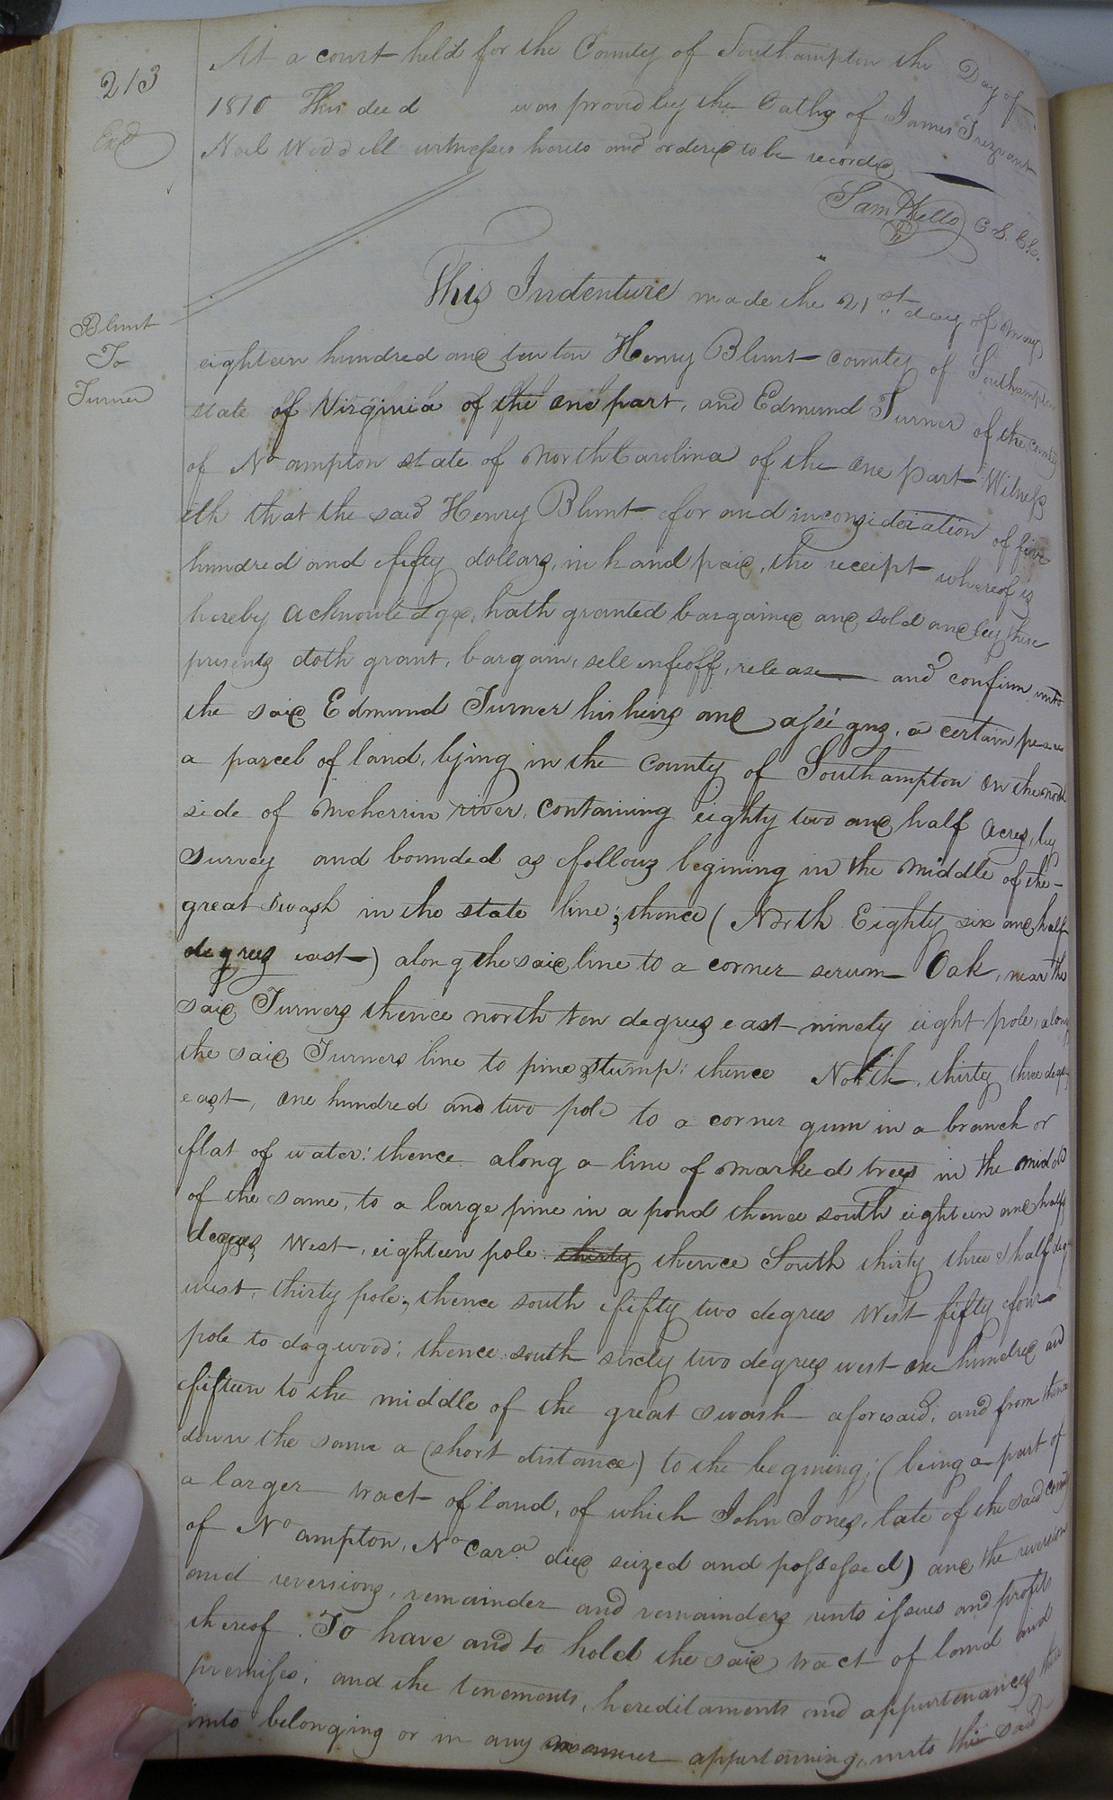 213
At a court held for the County of Southampton the Day of
1810 This deed was proved by the Oaths of James Trezvant
Exd
Neil Weddell witnesses hereto and ordered to be recorded
Sam Kello C.S.Ct.
This Indenture made the 21st day of May
Blunt
To
Turner
eighteen hundred and ten ten Henry Blunt county of Southampton
state of Virginia of the one part, and Edmund Turner of the County
of No ampton state of North Carolina of the one part Witness
eth that the said Henry Blunt for and in consideration of five
hundred and fifty dollars, in hand paid, the receipt whereof is
hereby acknowledged, hath granted bargained and sold and by these
presents doth grant, bargain, sell enfeoff, release and confirm unto
the said Edmund Turner his heirs and assigns, a certain
a parcel of land, lying in the County of Southampton on the north
side of Meherrin river, containing eighty two and half acres, by
survey and bounded as follows begining in the middle of the
great swash in the state line; thence (North Eighty six and half
degrees east) along the said line to a corner Oak, near the
said Turners thence north ten degrees east ninety eight pole, along
the said Turners line to pine stump: thence North, thirty three degs
east, one hundred and two pole to a corner gum in a branch or
flat of water: thence along a line of marked trees in the middle
of the same, to a large pine in a pond thence south eighteen and half
degrees West, eighteen pole thirty thence South thirty three & half deg
west, thirty pole, thence south fifty two degrees West fifty four
pole to dogwood; thence south sixty two degrees west one hundred and
fifteen to the middle of the great swash aforesaid; and from thence
down the same a (short distance) to the begining; (being a part of
a larger tract of land, of which John Jones, late of the said county
of No ampton, No Cara died seized and possessed) and the reversion
and reversions, remainder and remainders rents issues and profits
thereof. To have and to hold the said tract of land and
premises, and the tenements, hereditaments and appurtenances there
unto belonging or in any manner appertaining, unto the said